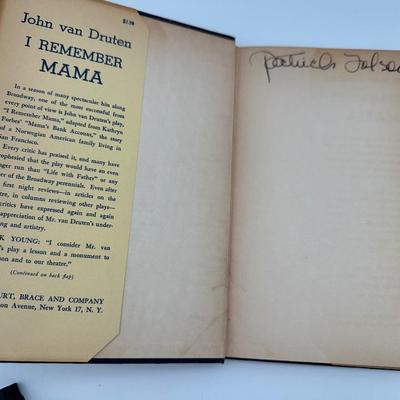 John van Druten
I REMEMBER
MAMA
In a season of many spectacular hits along
Broadway, one of the most successful from
every point of view is John van Druten's play,
"I Remember Mama," adapted from Kathryn
Forbes' "Mama's Bank Account," the story
of a Norwegian American family living in
San Francisco.
Every critic has praised it, and many have
prophesied that the play would have an even
longer run than "Life with Father" or any
of the Broadway perennials. Even after
first night reviews—in articles on the
in columns reviewing other plays—
critics have expressed again and again
appreciation of Mr. van Druten's under-
and artistry.
YOUNG: "I consider Mr. van
play a lesson and a monument to
and to our theatre."
(Continued on back flap)
BRACE AND COMPANY
Avenue, New York 17, N. Y.